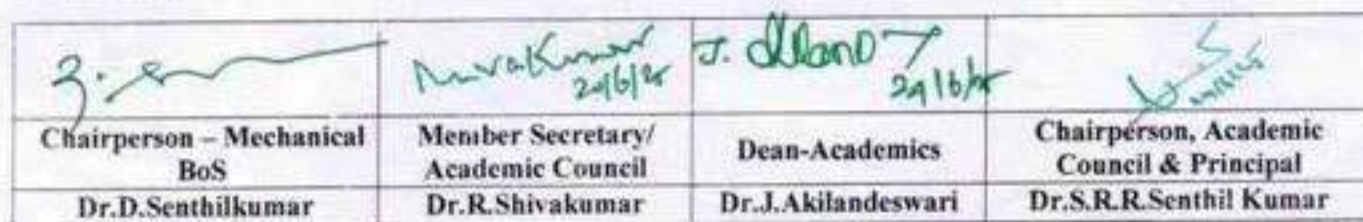 Chairperson – Mechanical BoS
Member Secretary/ Academic Council
Dean-Academics
Chairperson, Academic Council & Principal
Dr.D.Senthilkumar
Dr.R.Shivakumar
Dr.J.Akilandeswari
Dr.S.R.R.Senthil Kumar